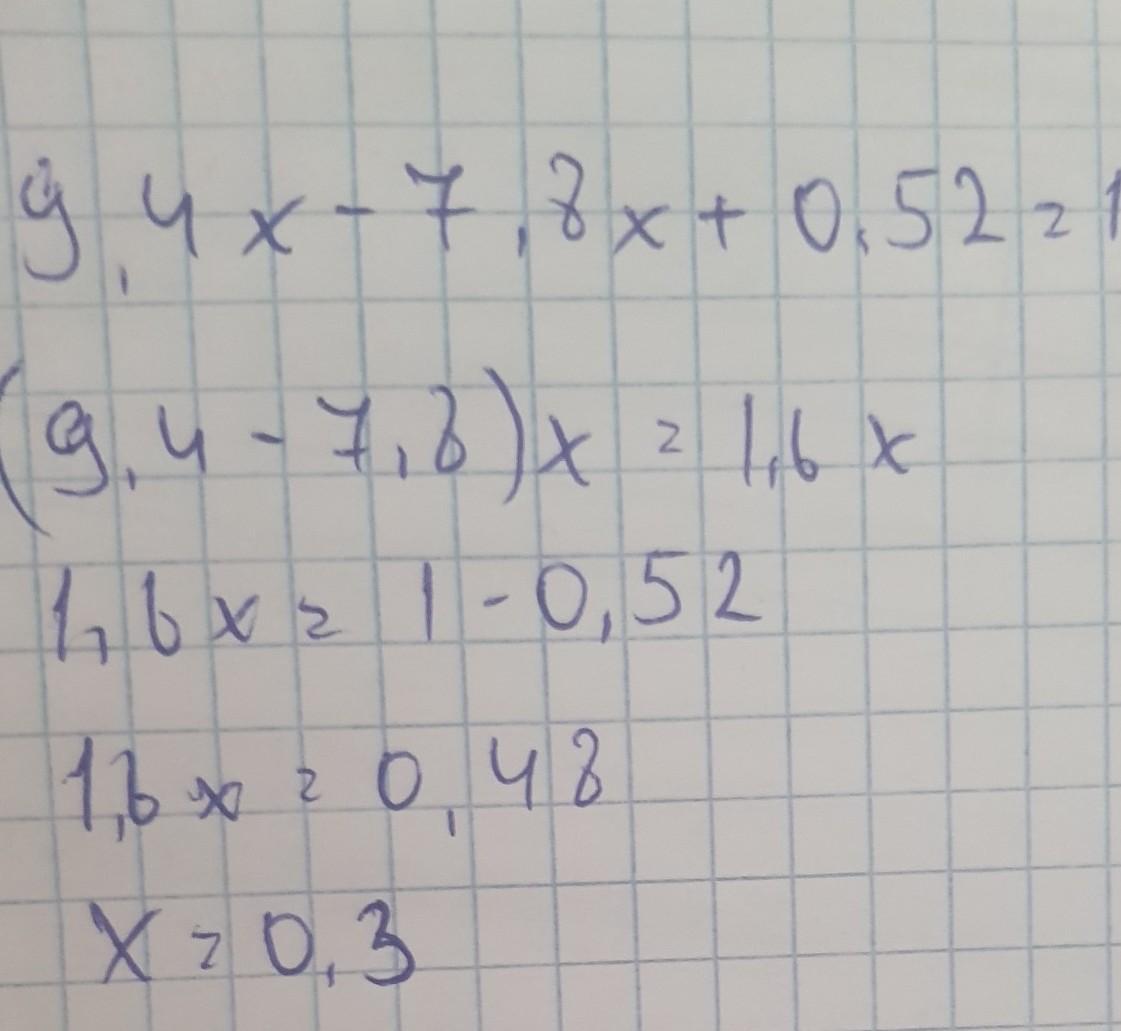 9,4x-7,8x+0,52=1
(9,4-7,8)x=1,6x
1,6x=1-0,52
1,6x=0,48
x=0,3